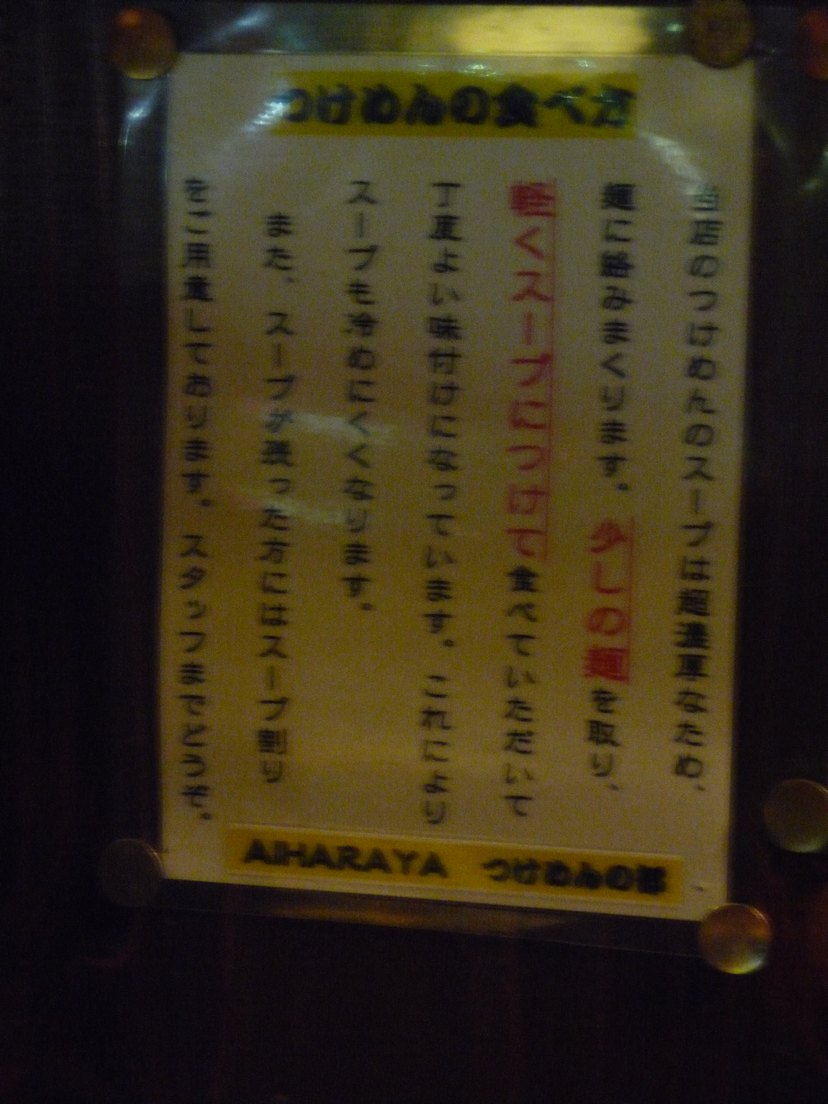 つけめんの食べ方
当店のつけめんのスープは超濃厚なため、
麺に絡みまくります。少しの麺を取り、
軽くスープにつけて食べていただいて
丁度よい味付けになっています。これにより
スープも冷めにくくなります。
また、スープが残った方にはスープ割り
をご用意しております。スタッフまでどうぞ。
AIHARAYA つけめんの部